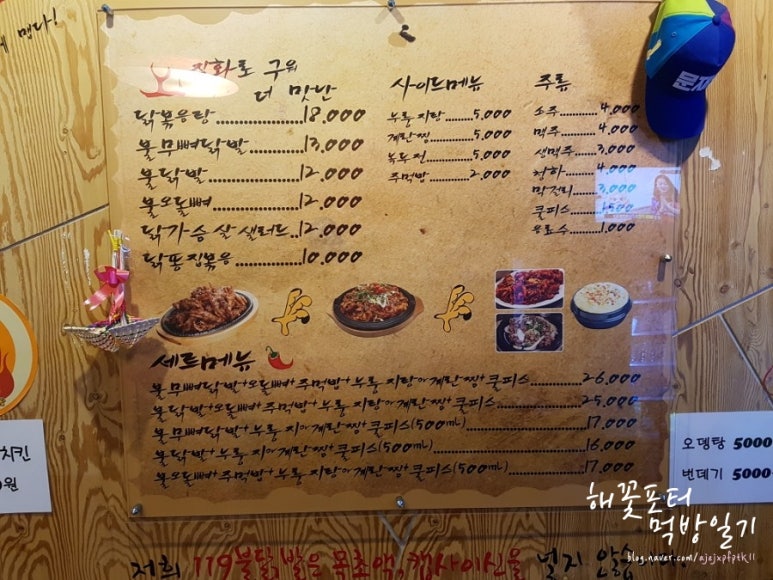 게 맵다!
직화로 구워
더 맛난
닭볶음탕..............18,000
불무뼈닭발............13,000
불닭발................12,000
불오돌뼈..............12,000
닭가슴살샐러드..12,000
닭똥집볶음............10,000
사이드메뉴
누룽지탕........5,000
계란찜..........5,000
녹두전..........5,000
주먹밥..........2,000
주류
소주........4,000
맥주........4,000
생맥주......3,000
청하........4,000
막걸리......3,000
쿨피스......1,500
음료수......1,000
문재
세트메뉴
불무뼈닭발+오돌뼈+주먹밥+누룽지탕or계란찜+쿨피스............26,000
불닭발+오돌뼈+주먹밥+누룽지탕or계란찜+쿨피스............25,000
불무뼈닭발+누룽지or계란찜+쿨피스(500ml)............17,000
불닭발+누룽지or계란찜+쿨피스(500ml)............16,000
불오돌뼈+주먹밥+누룽지탕or계란찜+쿨피스(500ml)............17,000
치킨
원
오뎅탕 5000
번데기 5000
저희 119불닭발은 목초액,캡사이신을 넣지 않습
해꽃포터
먹방일기
blog.naver.com/ajejxpfptk11